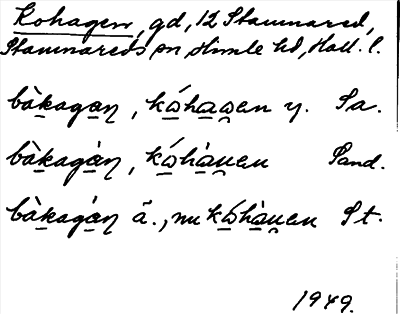 Kohagen, gd, 12 Stamnared,
Stamnareds sn, Himle hd, Hall. l.
bàkagan, kóhagen y. Sa.
bàkagàn, kóhàuen Sand.
bàkagàn ä., nu kóhàuen St.
1949.